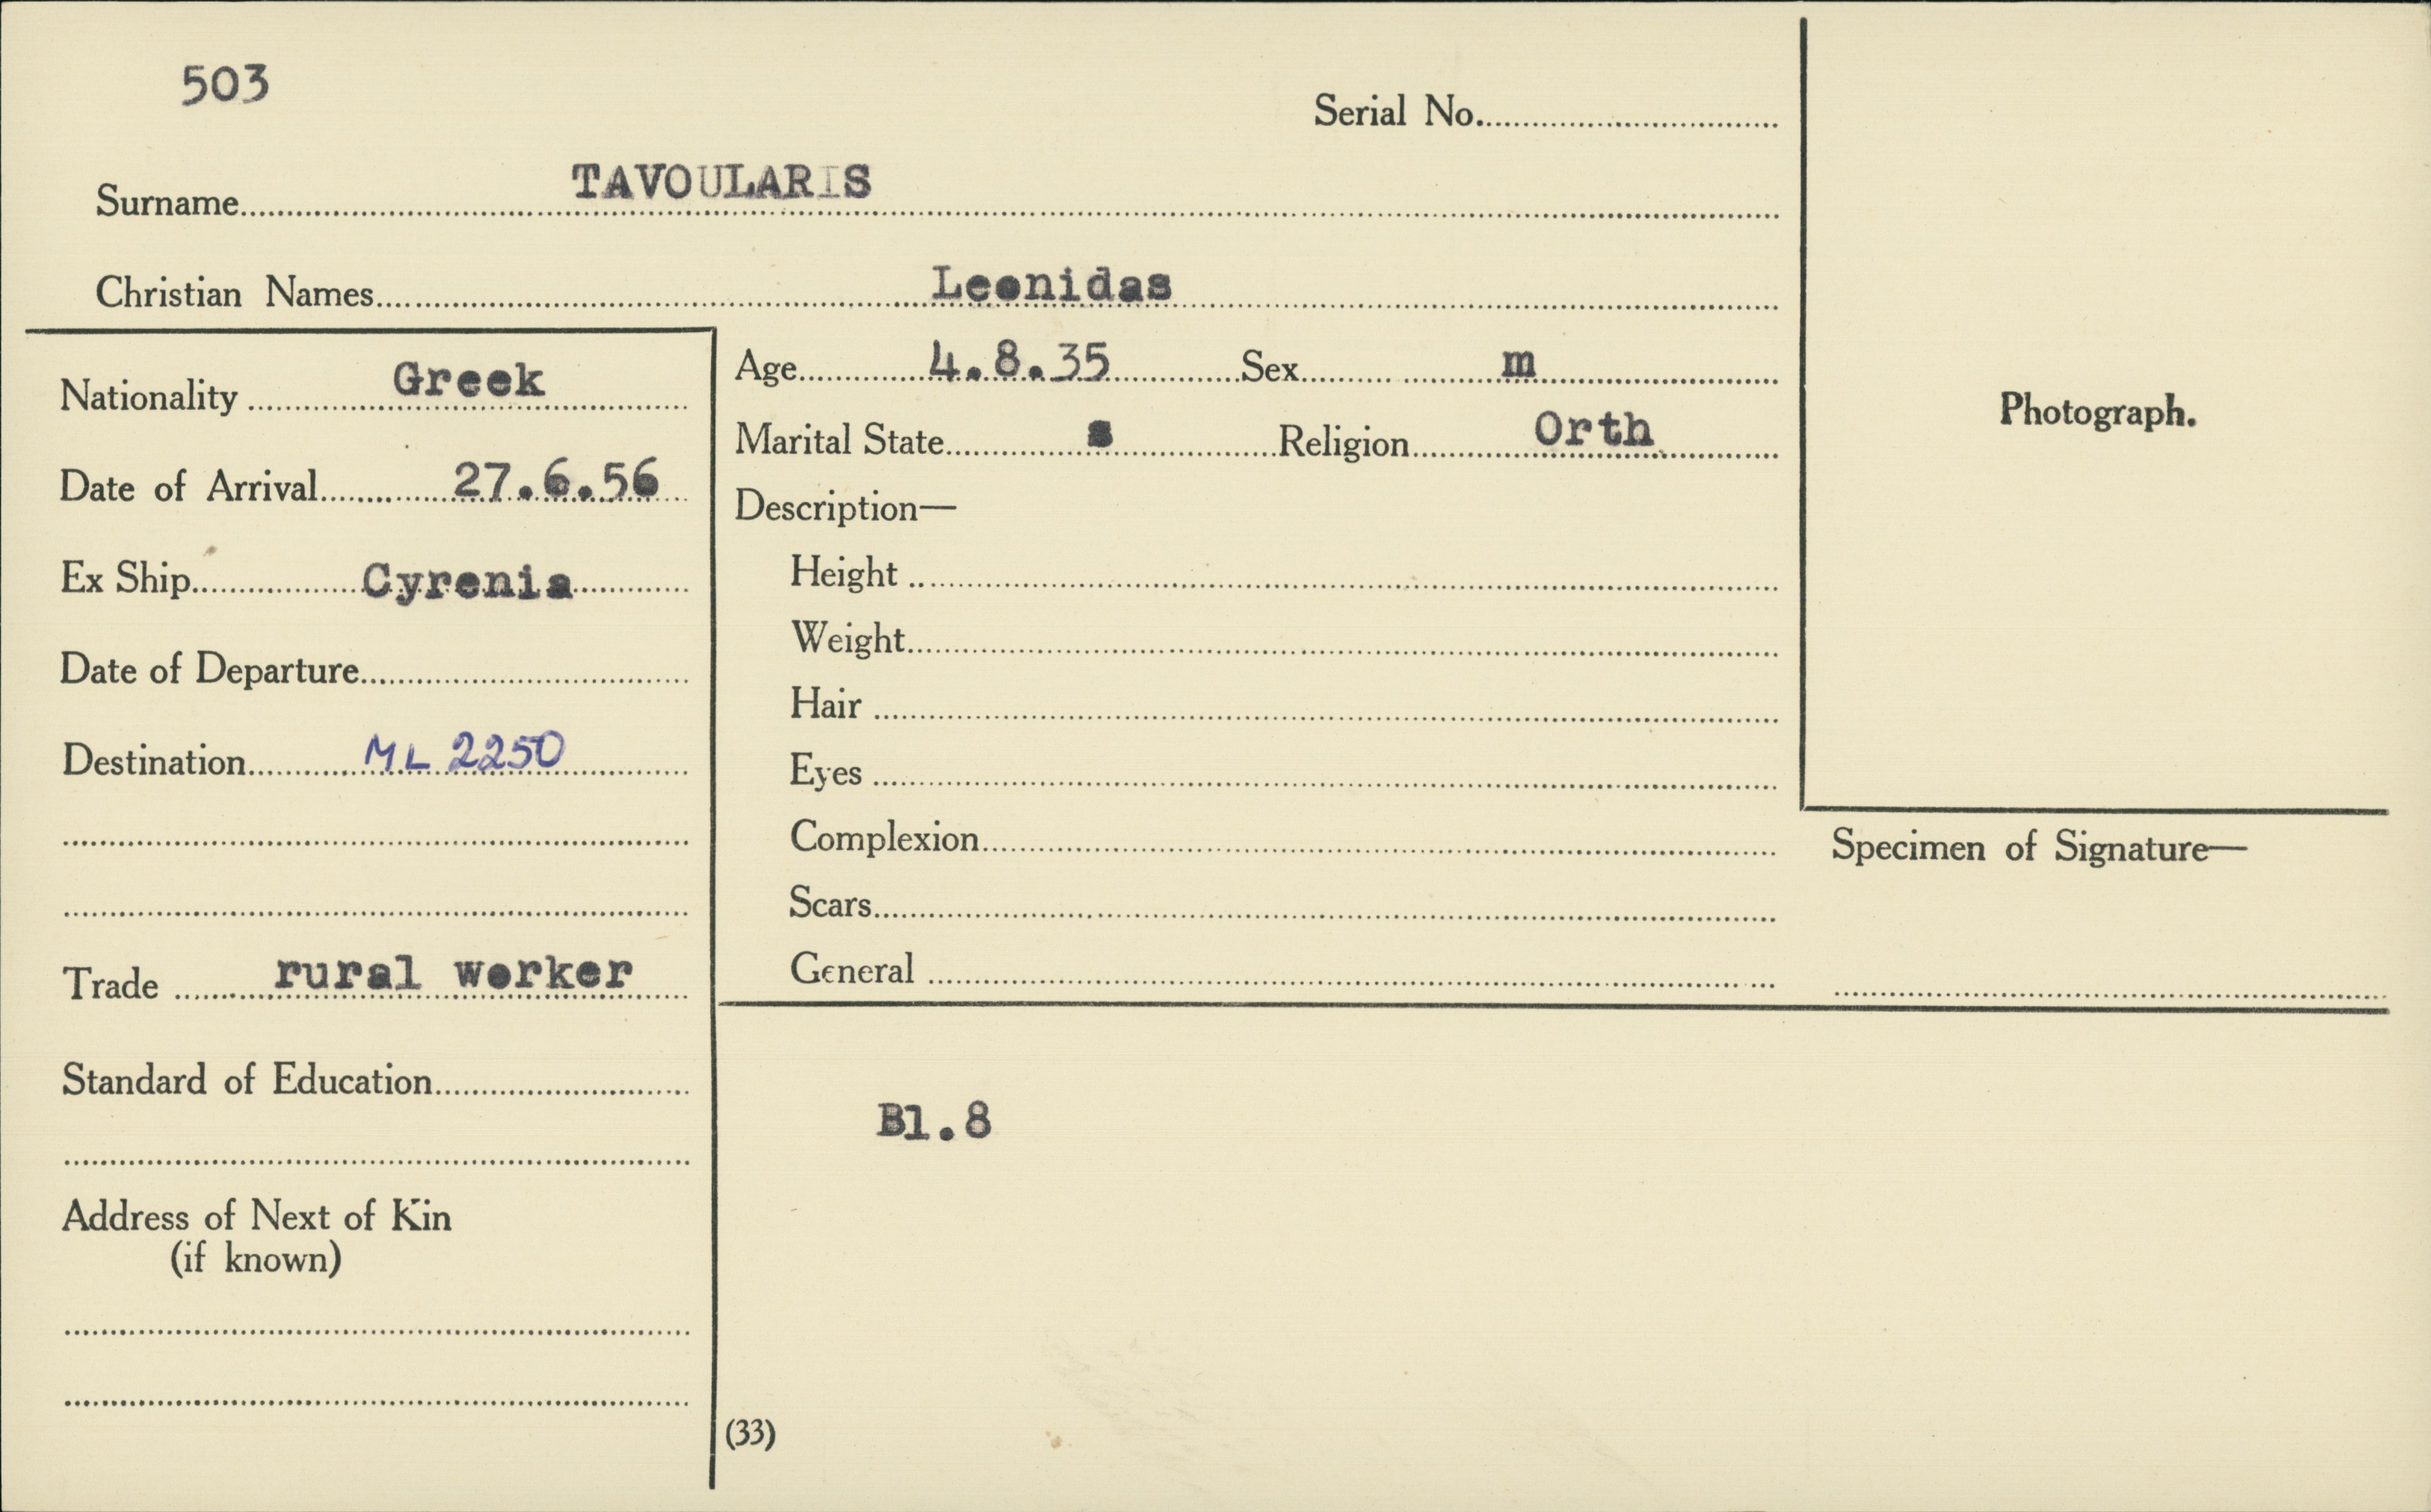 503
Serial No.
Surname TAVOULARIS
Christian Names Leonidas
Nationality Greek
Date of Arrival 27.6.56
Ex Ship Cyrenia
Date of Departure
Destination ML 2250
Trade rural worker
Standard of Education
Address of Next of Kin
(if known)
Age 4.8.35 Sex m
Marital State s Religion Orth
Description—
Height
Weight
Hair
Eyes
Complexion
Scars
General
Bl.8
(33)
Photograph.
Specimen of Signature—